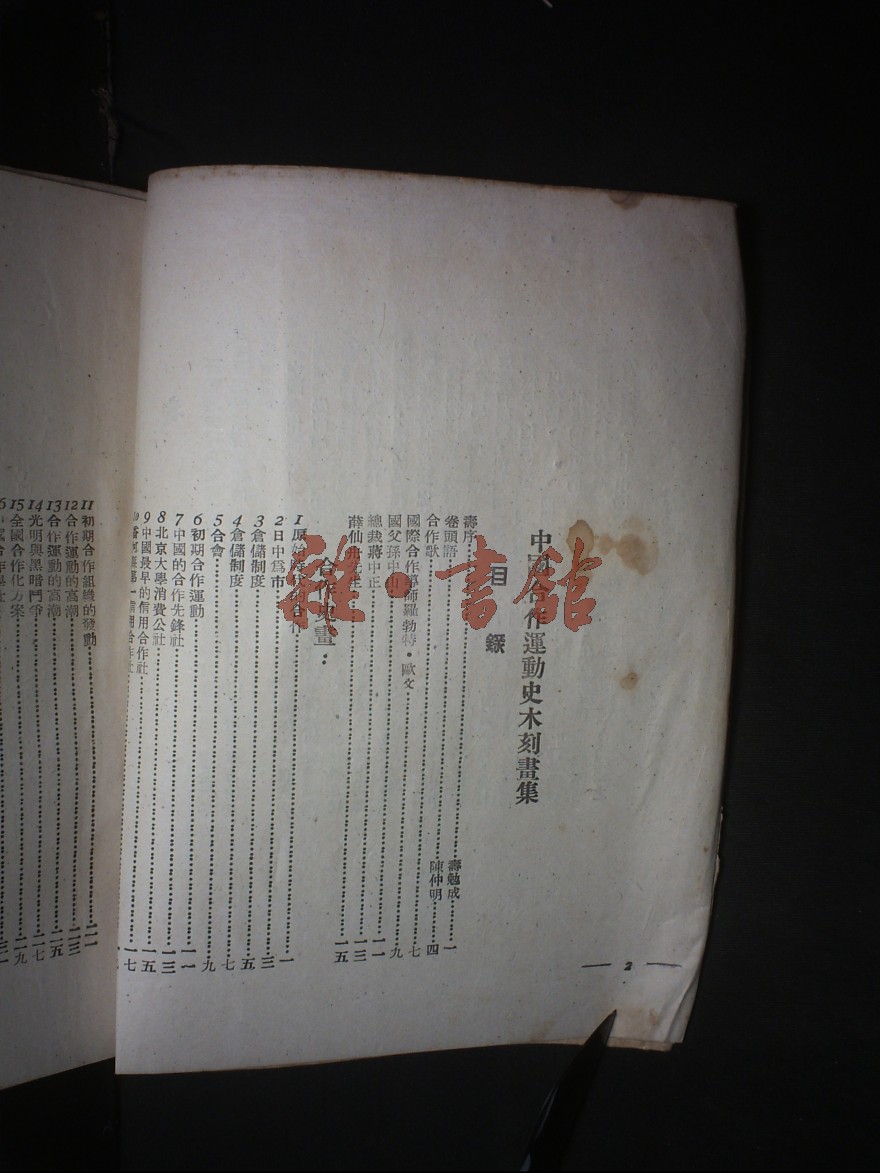 中國合作運動史木刻畫集
目錄
壽序……壽勉成 一
卷頭語……陳仲明 四
合作歌……七
國際合作導師羅勃特·歐文……九
國父孫中山……一一
總裁蔣中正……一三
薛仙舟先生……一五
合作史畫：
1 原始時代的合作……一
2 日中爲市……三
3 倉儲制度……五
4 倉儲制度……七
5 合會……九
6 初期合作運動……一一
7 中國的合作先鋒社……一三
8 北京大學消費公社……一五
9 中國最早的信用合作社……一七
10 香河縣第一信用合作社……
11 初期合作組織的發動……二一
12 合作運動的高潮……二三
13 合作運動的高潮……二五
14 光明與黑暗鬥爭……二七
15 全國合作化方案……二九
2
雜·書館